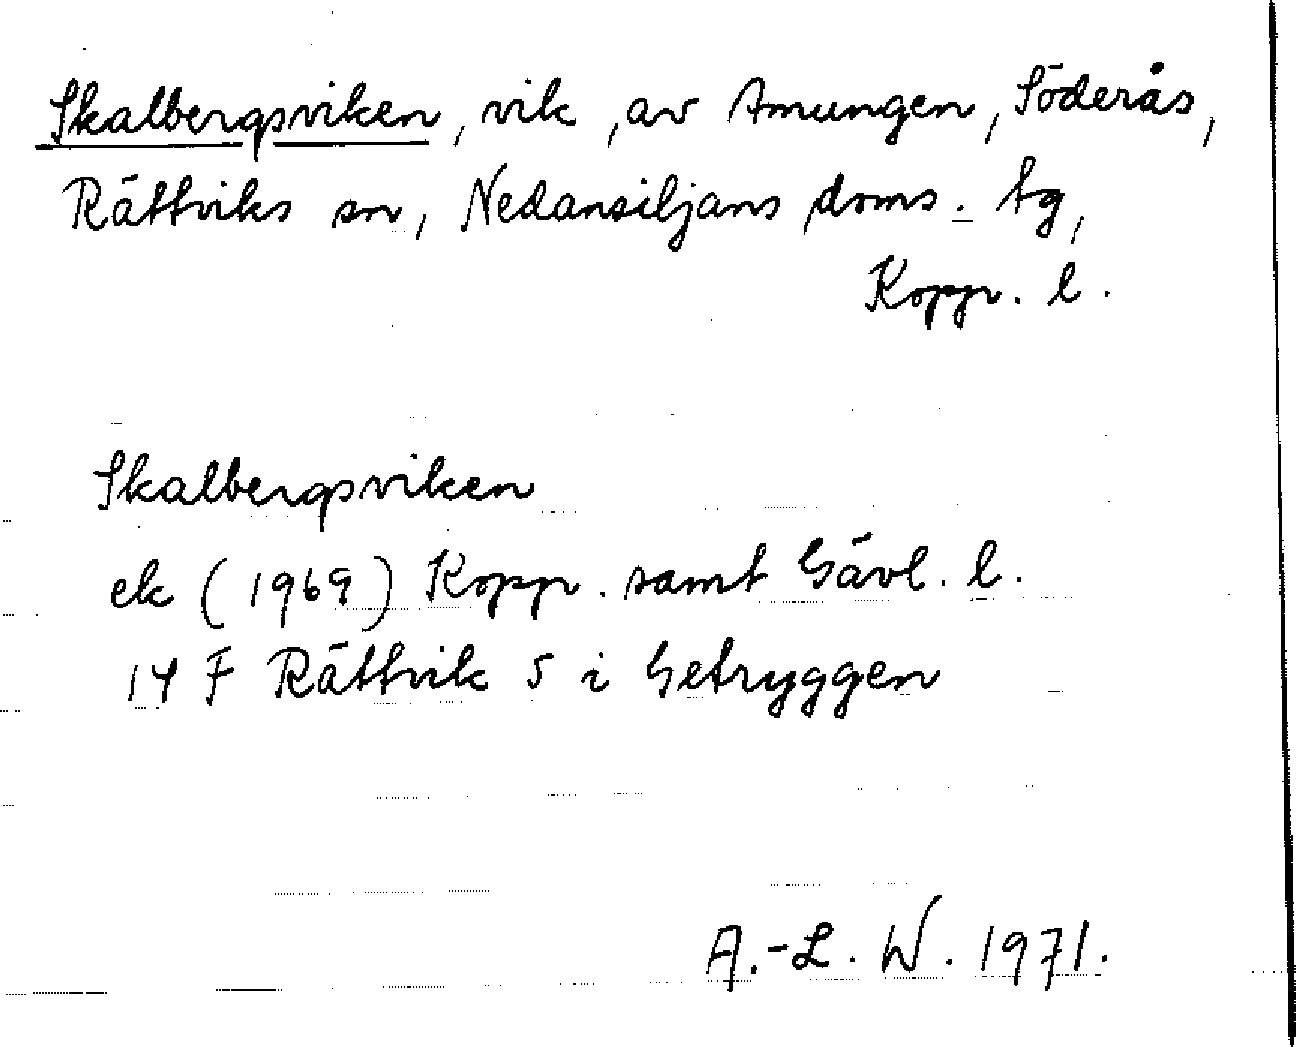 Skalbergsviken, vik, av Amungen, Söderås,
Rättviks sn, Nedansiljans doms. tg,
Kopp. l.
Skalbergsviken
ek (1969) Kopp. samt Gävl. l.
14 F Rättvik 5 i Getryggen
A.-L. W. 1971.